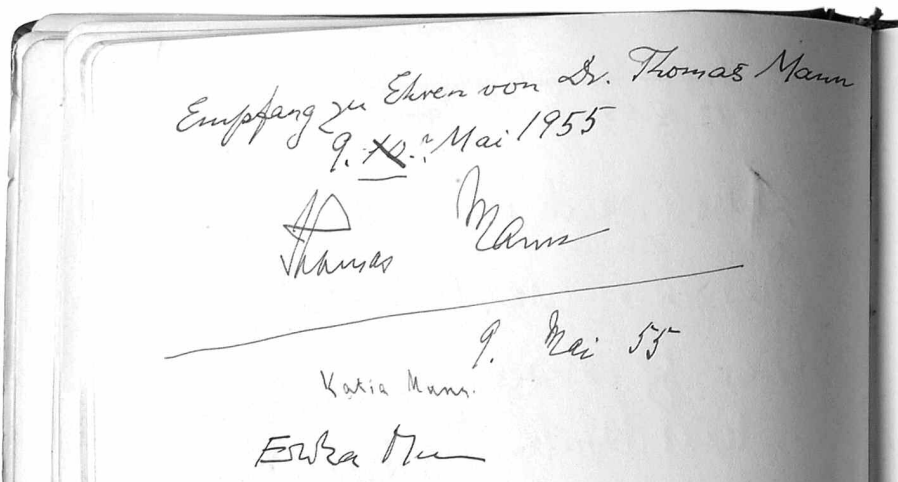 Empfang zu Ehren von Dr. Thomas Mann
9. ? Mai 1955
Thomas Mann
9. Mai 55
Katia Mann.
Erika Mann